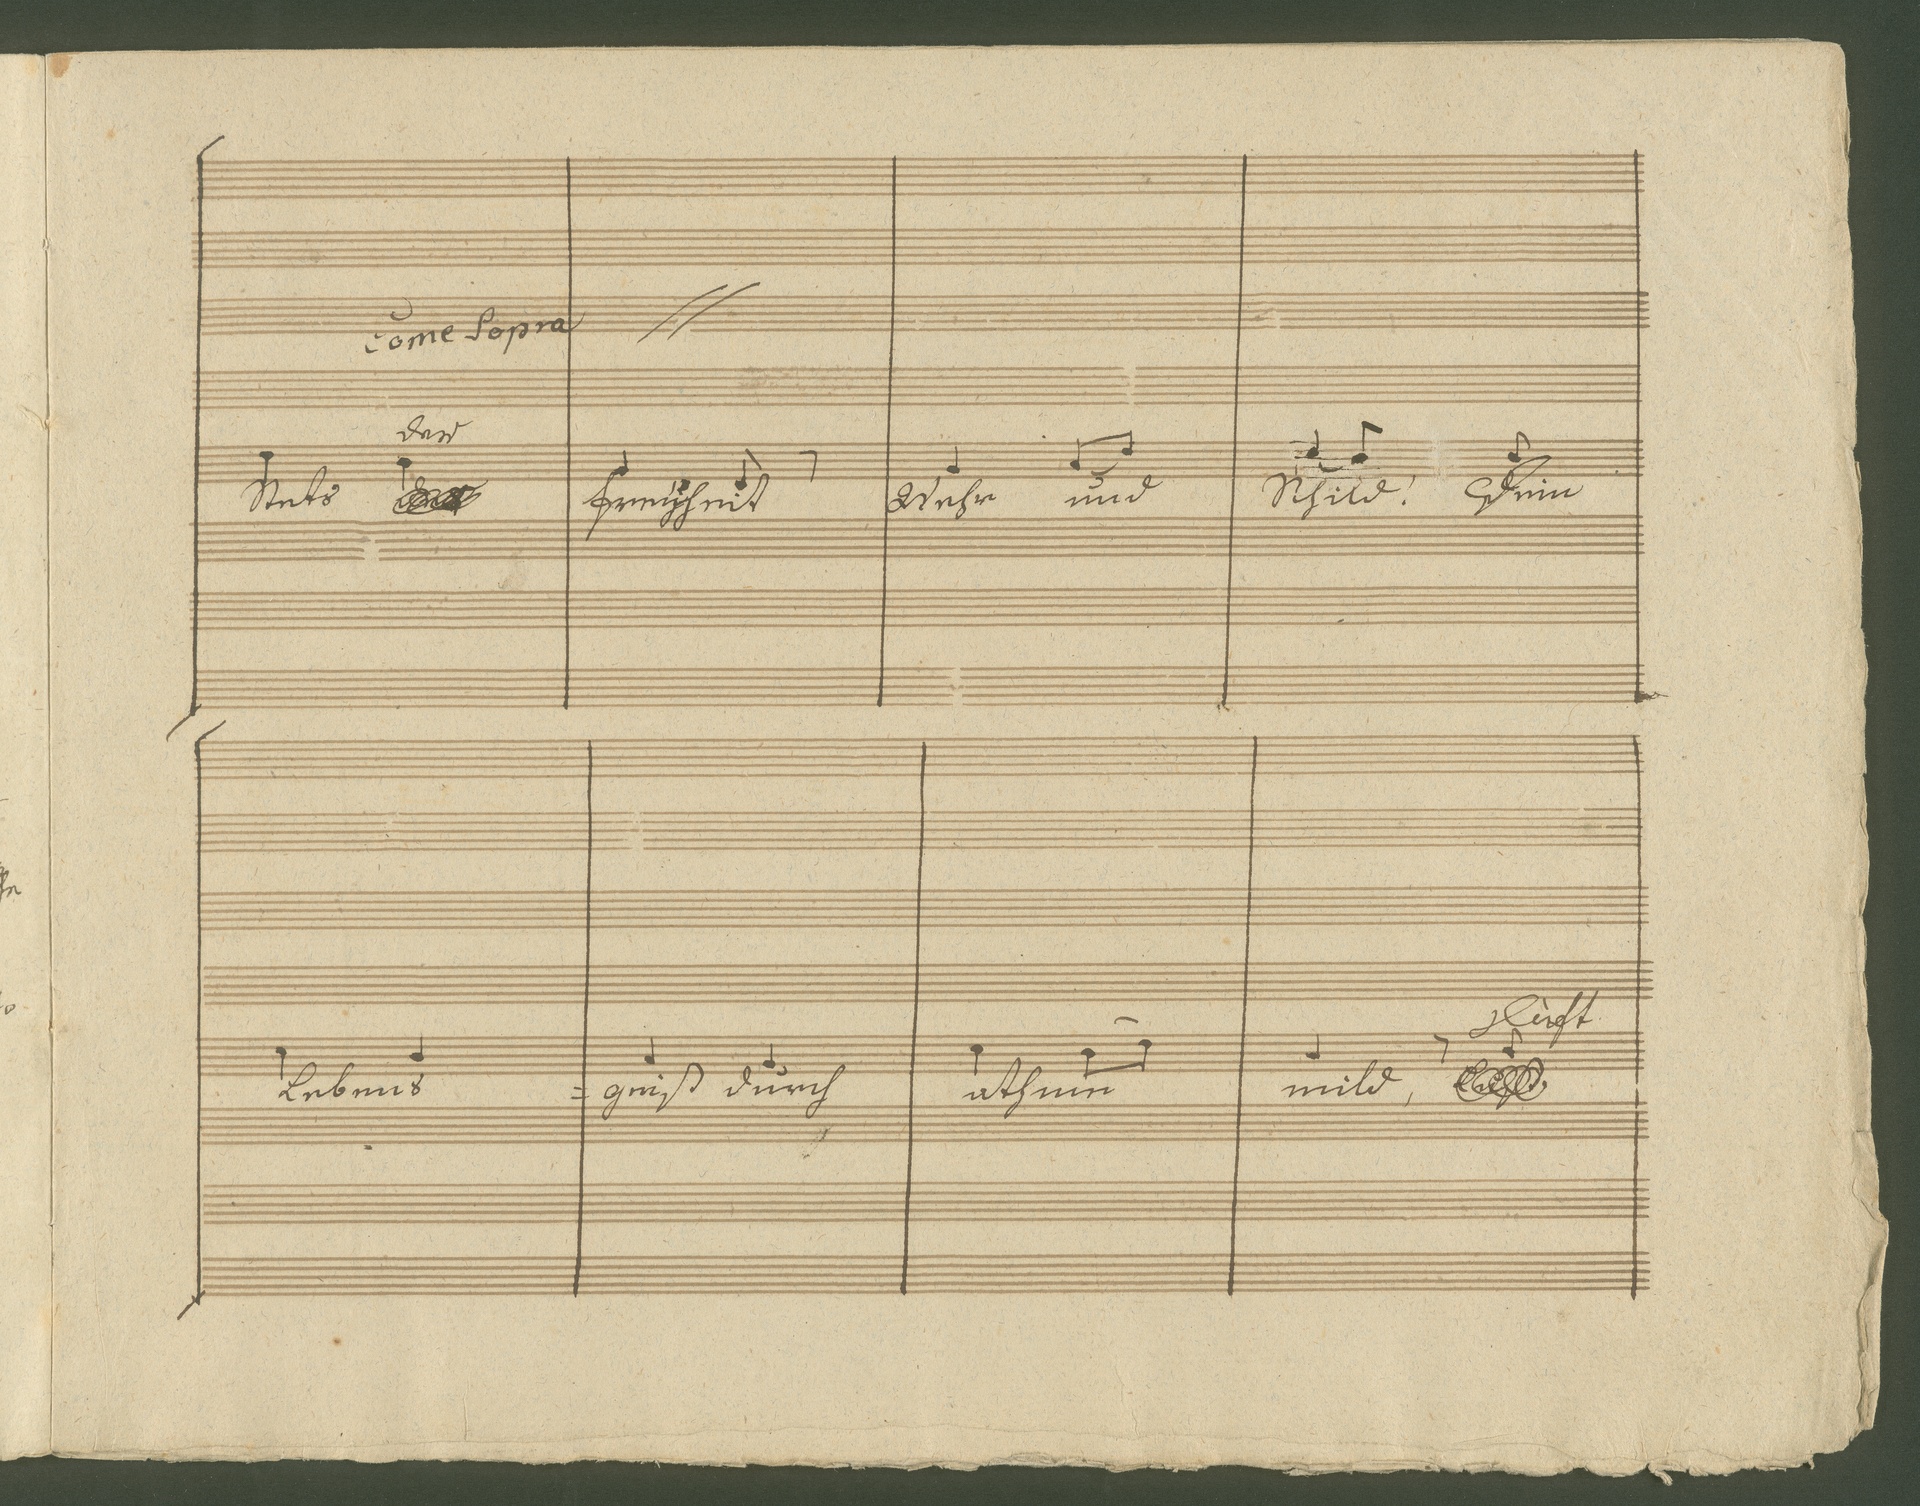 come Sopra
der
Stets Freyheit Wehr und Schild! Dein
Lebens = geist durch athme mild,